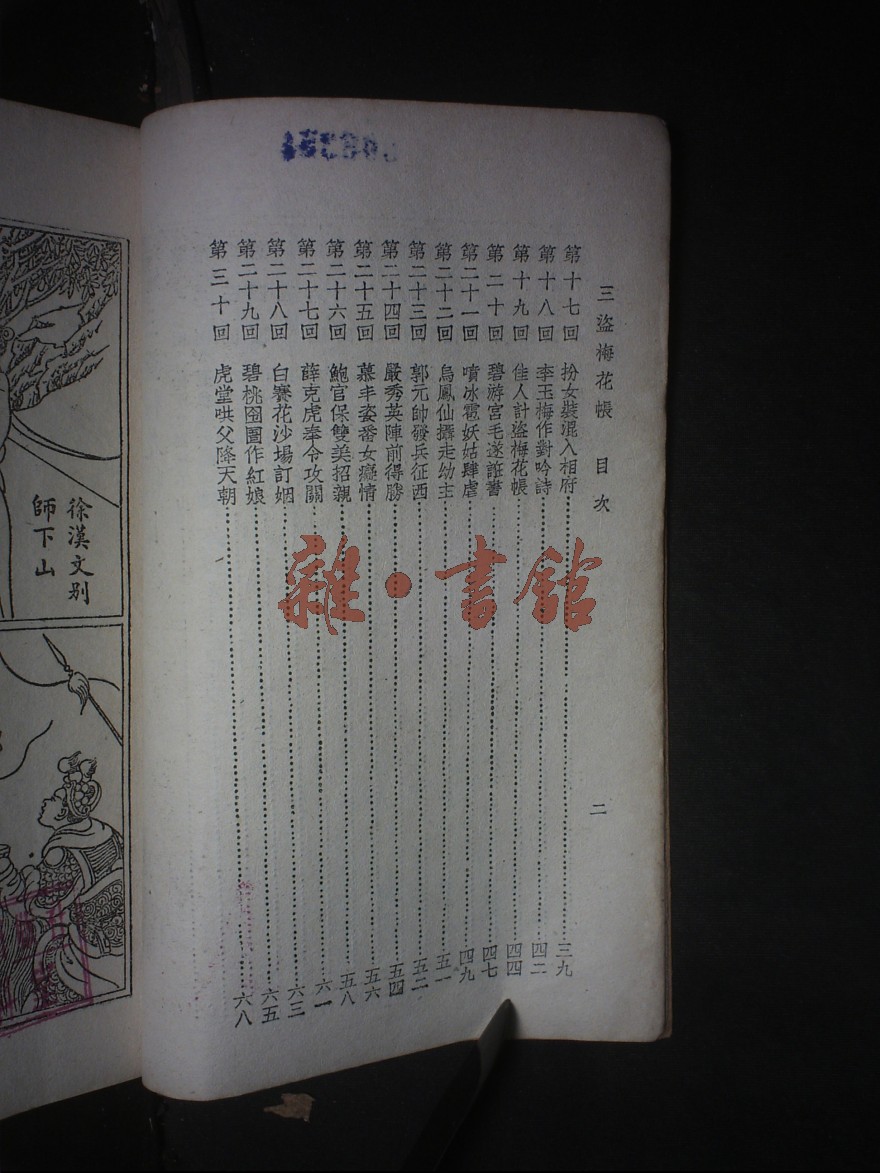 三盜梅花帳 目次 二
第十七回 扮女裝混入相府……三九
第十八回 李玉梅作對吟詩……四二
第十九回 佳人計盜梅花帳……四四
第二十回 碧游宮毛遂誑書……四七
第二十一回 噴冰雹妖姑肆虐……四九
第二十二回 烏鳳仙攝走幼主……五一
第二十三回 郭元帥發兵征西……五二
第二十四回 嚴秀英陣前得勝……五四
第二十五回 慕丰姿番女癡情……五六
第二十六回 鮑官保雙美招親……五八
第二十七回 薛克虎奉令攻關……六一
第二十八回 白賽花沙場訂姻……六三
第二十九回 碧桃囹圄作紅娘……六五
第三十回 虎堂哄父降天朝……六八
徐漢文别
師下山
雜·書館